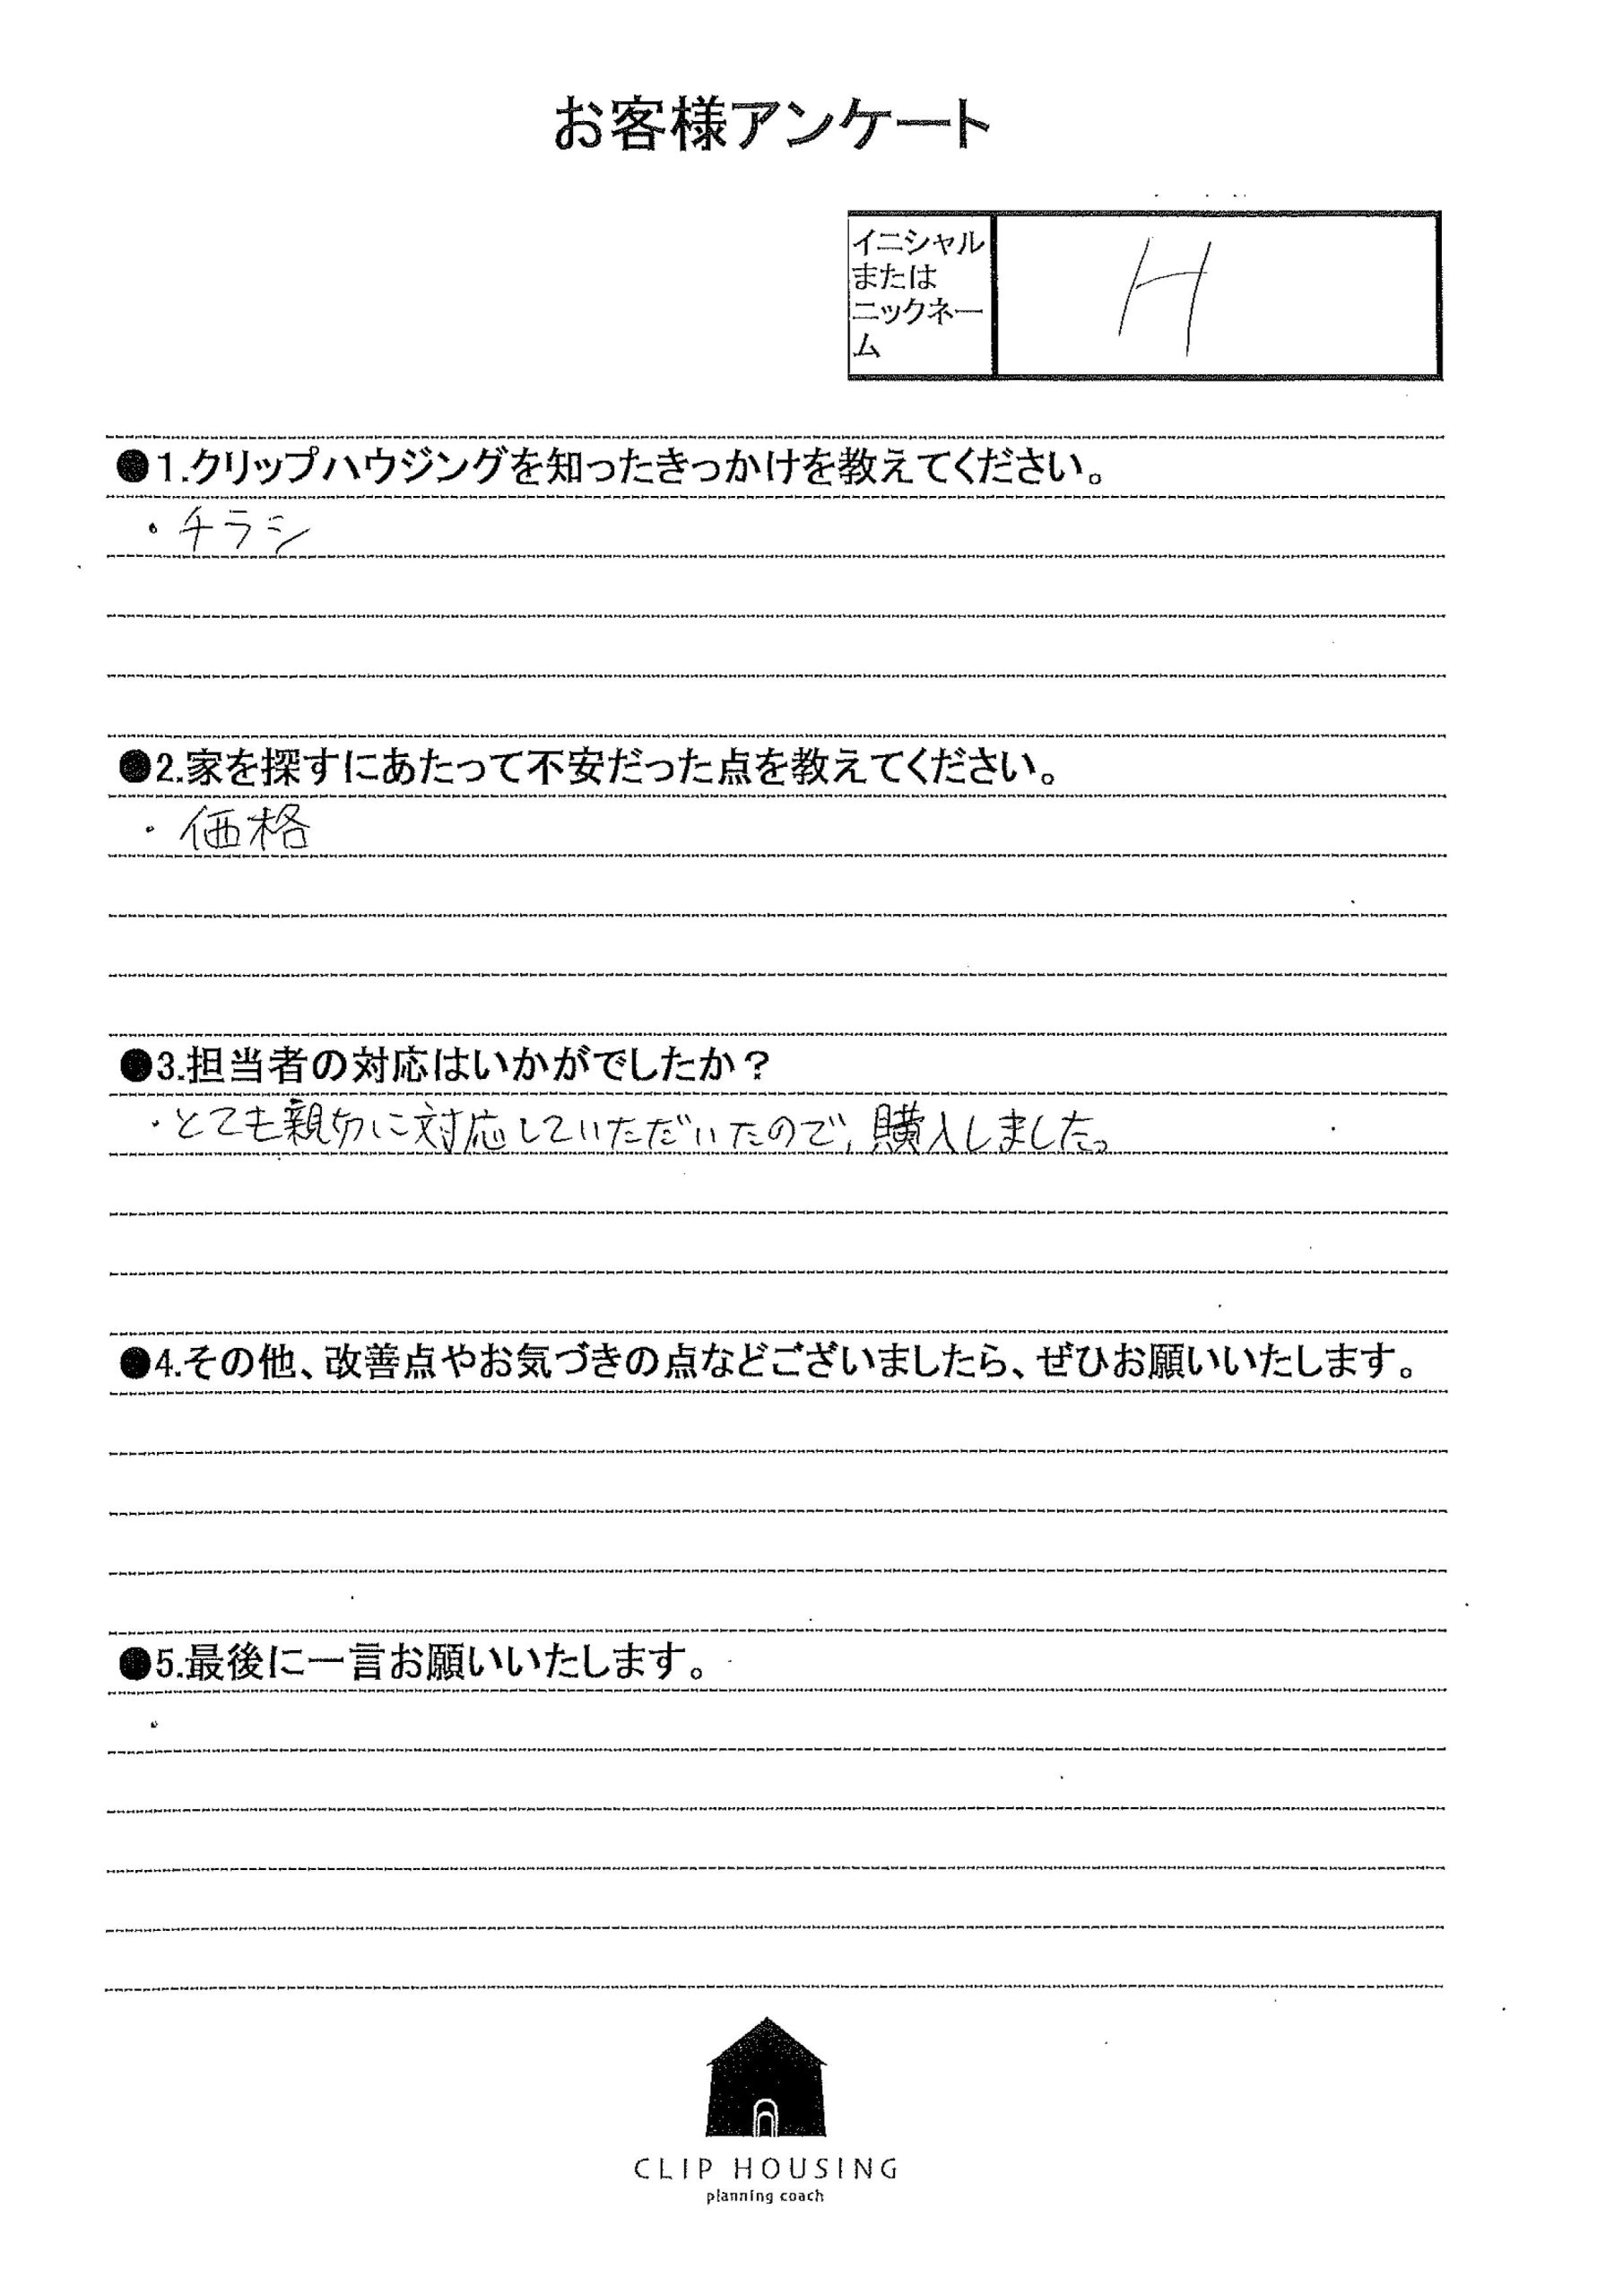 お客様アンケート
イニシャル
または
ニックネー
ム
H
●1.クリップハウジングを知ったきっかけを教えてください。
・チラシ
●2.家を探すにあたって不安だった点を教えてください。
・価格
●3.担当者の対応はいかがでしたか？
・とても親切に対応していただいたので、購入しました。
●4.その他、改善点やお気づきの点などございましたら、ぜひお願いいたします。
●5.最後に一言お願いいたします。
・
CLIP HOUSING
planning coach